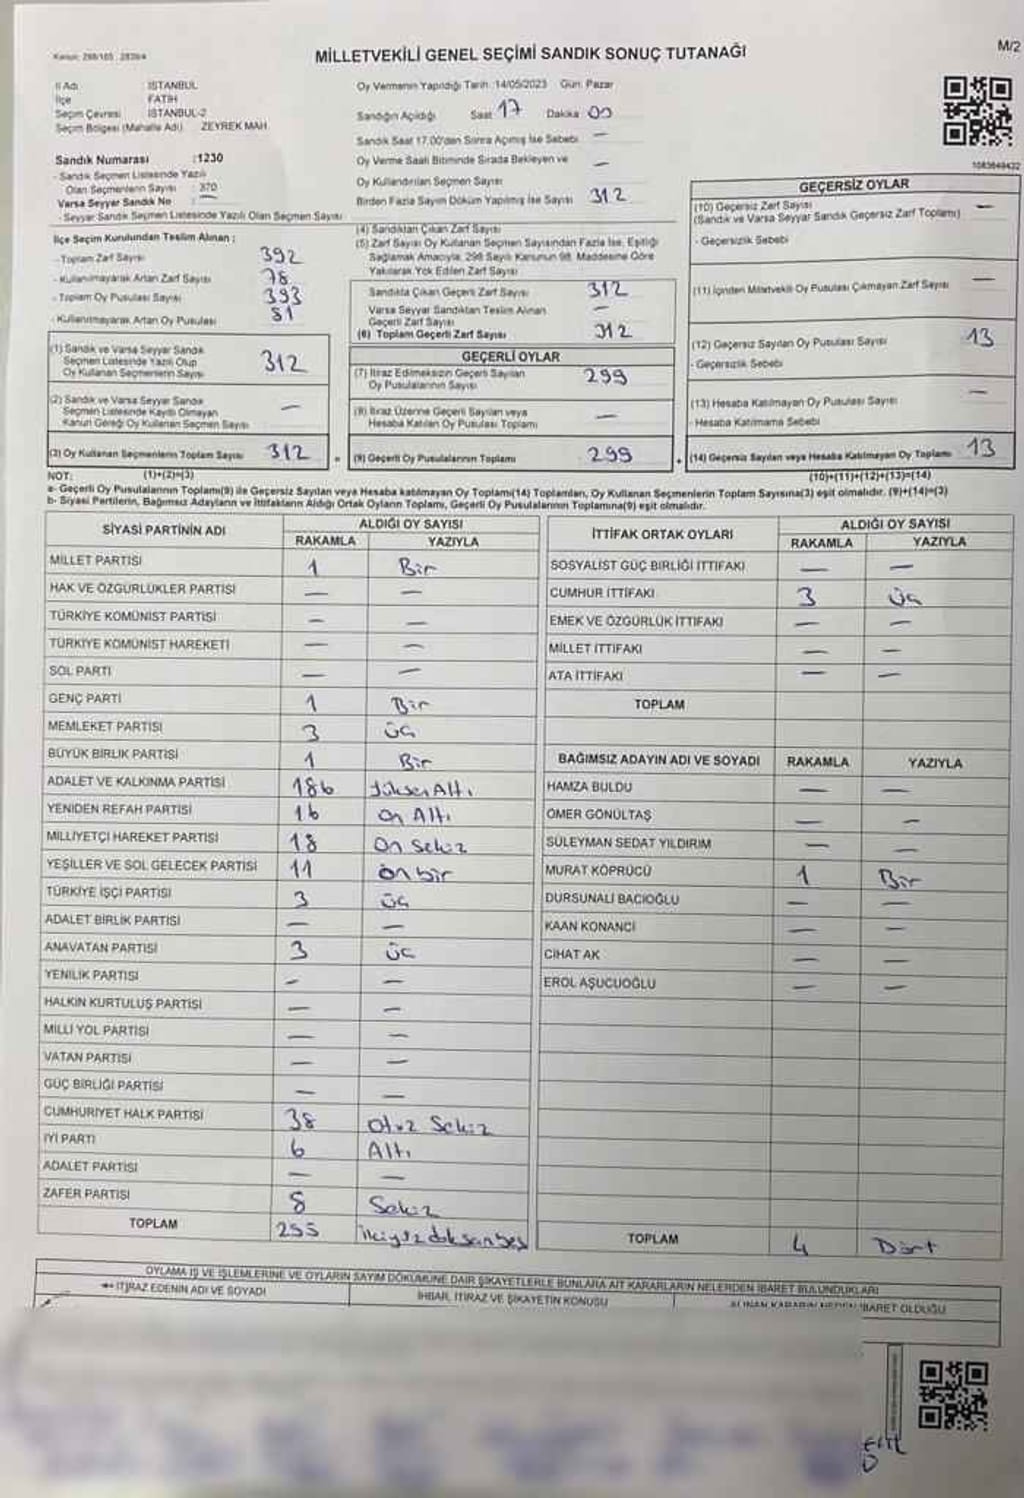 Kanun: 298/105 . 2839/4
MİLLETVEKİLİ GENEL SEÇİMİ SANDIK SONUÇ TUTANAĞI
M/2
İl Adı : İSTANBUL
İlçe : FATİH
Seçim Çevresi : İSTANBUL-2
Seçim Bölgesi (Mahalle Adı) ZEYREK MAH.
Sandık Numarası :1230
- Sandık Seçmen Listesinde Yazılı
Olan Seçmenlerin Sayısı : 370
Varsa Seyyar Sandık No : —
- Seyyar Sandık Seçmen Listesinde Yazılı Olan Seçmen Sayısı
İlçe Seçim Kurulundan Teslim Alınan ;
- Toplam Zarf Sayısı 392
- Kullanılmayarak Artan Zarf Sayısı 78
- Toplam Oy Pusulası Sayısı 393
- Kullanılmayarak Artan Oy Pusulası 81
(1) Sandık ve Varsa Seyyar Sandık
Seçmen Listesinde Yazılı Olup
Oy Kullanan Seçmenlerin Sayısı 312
(2) Sandık ve Varsa Seyyar Sandık
Seçmen Listesinde Kaydı Olmayan
Kanun Gereği Oy Kullanan Seçmen Sayısı —
(3) Oy Kullanan Seçmenlerin Toplam Sayısı 312
Oy Vermenin Yapıldığı Tarih :14/05/2023 Gün: Pazar
Sandığın Açıldığı Saat 17 Dakika 00
Sandık Saat 17.00'den Sonra Açılmış İse Sebebi —
Oy Verme Saati Bitiminde Sırada Bekleyen ve —
Oy Kullandırılan Seçmen Sayısı
Birden Fazla Sayım Döküm Yapılmış İse Sayısı 312
(4) Sandıktan Çıkan Zarf Sayısı
(5) Zarf Sayısı Oy Kullanan Seçmen Sayısından Fazla İse, Eşitliği
Sağlamak Amacıyla, 298 Sayılı Kanunun 98. Maddesine Göre
Yakılarak Yok Edilen Zarf Sayısı
Sandıkta Çıkan Geçerli Zarf Sayısı 312
Varsa Seyyar Sandıktan Teslim Alınan
Geçerli Zarf Sayısı —
(6) Toplam Geçerli Zarf Sayısı 312
GEÇERLİ OYLAR
(7) İtiraz Edilmeksizin Geçerli Sayılan
Oy Pusulalarının Sayısı 299
(8) İtiraz Üzerine Geçerli Sayılan veya
Hesaba Katılan Oy Pusulası Toplamı —
(9) Geçerli Oy Pusulalarının Toplamı 299
1083649422
GEÇERSİZ OYLAR
(10) Geçersiz Zarf Sayısı —
(Sandık ve Varsa Seyyar Sandık Geçersiz Zarf Toplamı)
- Geçersizlik Sebebi
(11) İçinden Milletvekili Oy Pusulası Çıkmayan Zarf Sayısı —
(12) Geçersiz Sayılan Oy Pusulası Sayısı 13
- Geçersizlik Sebebi
(13) Hesaba Katılmayan Oy Pusulası Sayısı —
- Hesaba Katılmama Sebebi
(14) Geçersiz Sayılan veya Hesaba Katılmayan Oy Toplamı 13
NOT: (1)+(2)=(3) (10)+(11)+(12)+(13)=(14)
a- Geçerli Oy Pusulalarının Toplamı(9) ile Geçersiz Sayılan veya Hesaba katılmayan Oy Toplamı(14) Toplamları, Oy Kullanan Seçmenlerin Toplam Sayısına(3) eşit olmalıdır. (9)+(14)=(3)
b- Siyasi Partilerin, Bağımsız Adayların ve İttifakların Aldığı Ortak Oyların Toplamı, Geçerli Oy Pusulalarının Toplamına(9) eşit olmalıdır.
SİYASİ PARTİNİN ADI ALDIĞI OY SAYISI
RAKAMLA YAZIYLA
MİLLET PARTİSİ 1 Bir
HAK VE ÖZGÜRLÜKLER PARTİSİ — —
TÜRKİYE KOMÜNİST PARTİSİ — —
TÜRKİYE KOMÜNİST HAREKETİ — —
SOL PARTİ — —
GENÇ PARTİ 1 Bir
MEMLEKET PARTİSİ 3 üç
BÜYÜK BİRLİK PARTİSİ 1 Bir
ADALET VE KALKINMA PARTİSİ 186
YENİDEN REFAH PARTİSİ 16 On Altı
MİLLİYETÇİ HAREKET PARTİSİ 18 On Sekiz
YEŞİLLER VE SOL GELECEK PARTİSİ 11 onbir
TÜRKİYE İŞÇİ PARTİSİ 3 üç
ADALET BİRLİK PARTİSİ — —
ANAVATAN PARTİSİ 3 üç
YENİLİK PARTİSİ — —
HALKIN KURTULUŞ PARTİSİ — —
MİLLİ YOL PARTİSİ — —
VATAN PARTİSİ — —
GÜÇ BİRLİĞİ PARTİSİ — —
CUMHURİYET HALK PARTİSİ 38 Otuz Sekiz
İYİ PARTİ 6 Altı
ADALET PARTİSİ — —
ZAFER PARTİSİ 8 Sekiz
TOPLAM 295 ikiyüzdoksanbeş
İTTİFAK ORTAK OYLARI ALDIĞI OY SAYISI
RAKAMLA YAZIYLA
SOSYALİST GÜÇ BİRLİĞİ İTTİFAKI — —
CUMHUR İTTİFAKI 3 üç
EMEK VE ÖZGÜRLÜK İTTİFAKI — —
MİLLET İTTİFAKI — —
ATA İTTİFAKI — —
TOPLAM
BAĞIMSIZ ADAYIN ADI VE SOYADI RAKAMLA YAZIYLA
HAMZA BULDU — —
ÖMER GÖNÜLTAŞ — —
SÜLEYMAN SEDAT YILDIRIM — —
MURAT KÖPRÜCÜ 1 Bir
DURSUNALİ BACIOĞLU — —
KAAN KONANCİ — —
CİHAT AK — —
EROL AŞUCUOĞLU — —
TOPLAM 4 Dört
OYLAMA İŞ VE İŞLEMLERİNE VE OYLARIN SAYIM DÖKÜMÜNE DAİR ŞİKAYETLERLE BUNLARA AİT KARARLARIN NELERDEN İBARET BULUNDUKLARI
İTİRAZ EDENİN ADI VE SOYADI İHBAR, İTİRAZ VE ŞİKAYETİN KONUSU ALINAN KARARIN NEDEN İBARET OLDUĞU